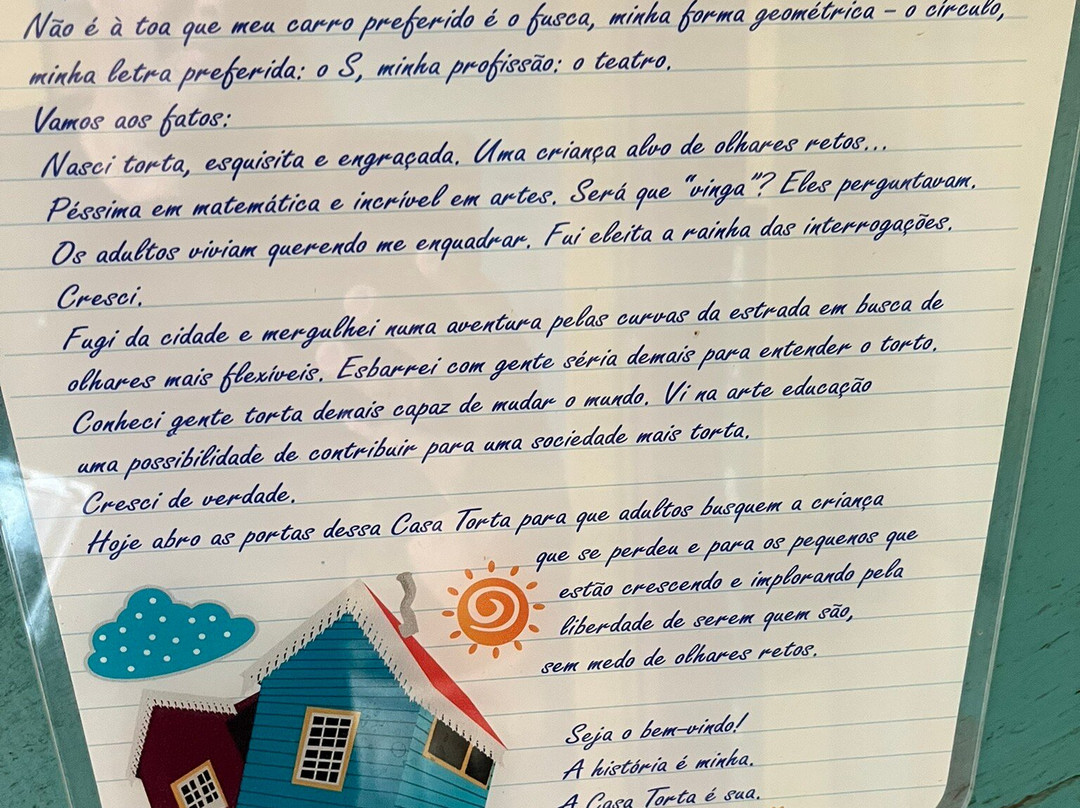 Não é à toa que meu carro preferido é o fusca, minha forma geométrica – o círculo,
minha letra preferida: o S, minha profissão: o teatro.
Vamos aos fatos:
Nasci torta, esquisita e engraçada. Uma criança alvo de olhares retos...
Péssima em matemática e incrível em artes. Será que "vinga"? Eles perguntavam.
Os adultos viviam querendo me enquadrar. Fui eleita a rainha das interrogações.
Cresci.
Fugi da cidade e mergulhei numa aventura pelas curvas da estrada em busca de
olhares mais flexíveis. Esbarrei com gente séria demais para entender o torto.
Conheci gente torta demais capaz de mudar o mundo. Vi na arte educação
uma possibilidade de contribuir para uma sociedade mais torta.
Cresci de verdade.
Hoje abro as portas dessa Casa Torta para que adultos busquem a criança
que se perdeu e para os pequenos que
estão crescendo e implorando pela
liberdade de serem quem são,
sem medo de olhares retos.
Seja o bem-vindo!
A história é minha.
A Casa Torta é sua.